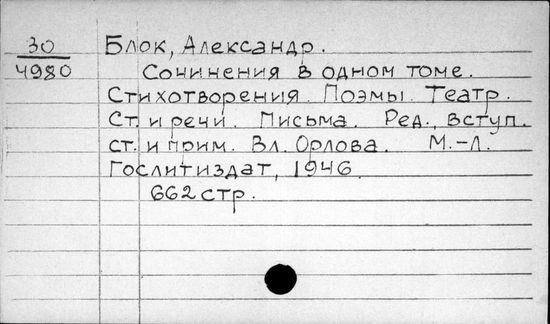 30
4980
Блок, Александр.
Сочинения в одном томе.
Стихотворения. Поэмы. Театр.
Ст. и речи. Письма. Ред., вступ.
ст. и прим. Вл. Орлова. М.-Л.
Гослитиздат, 1946.
662 стр.